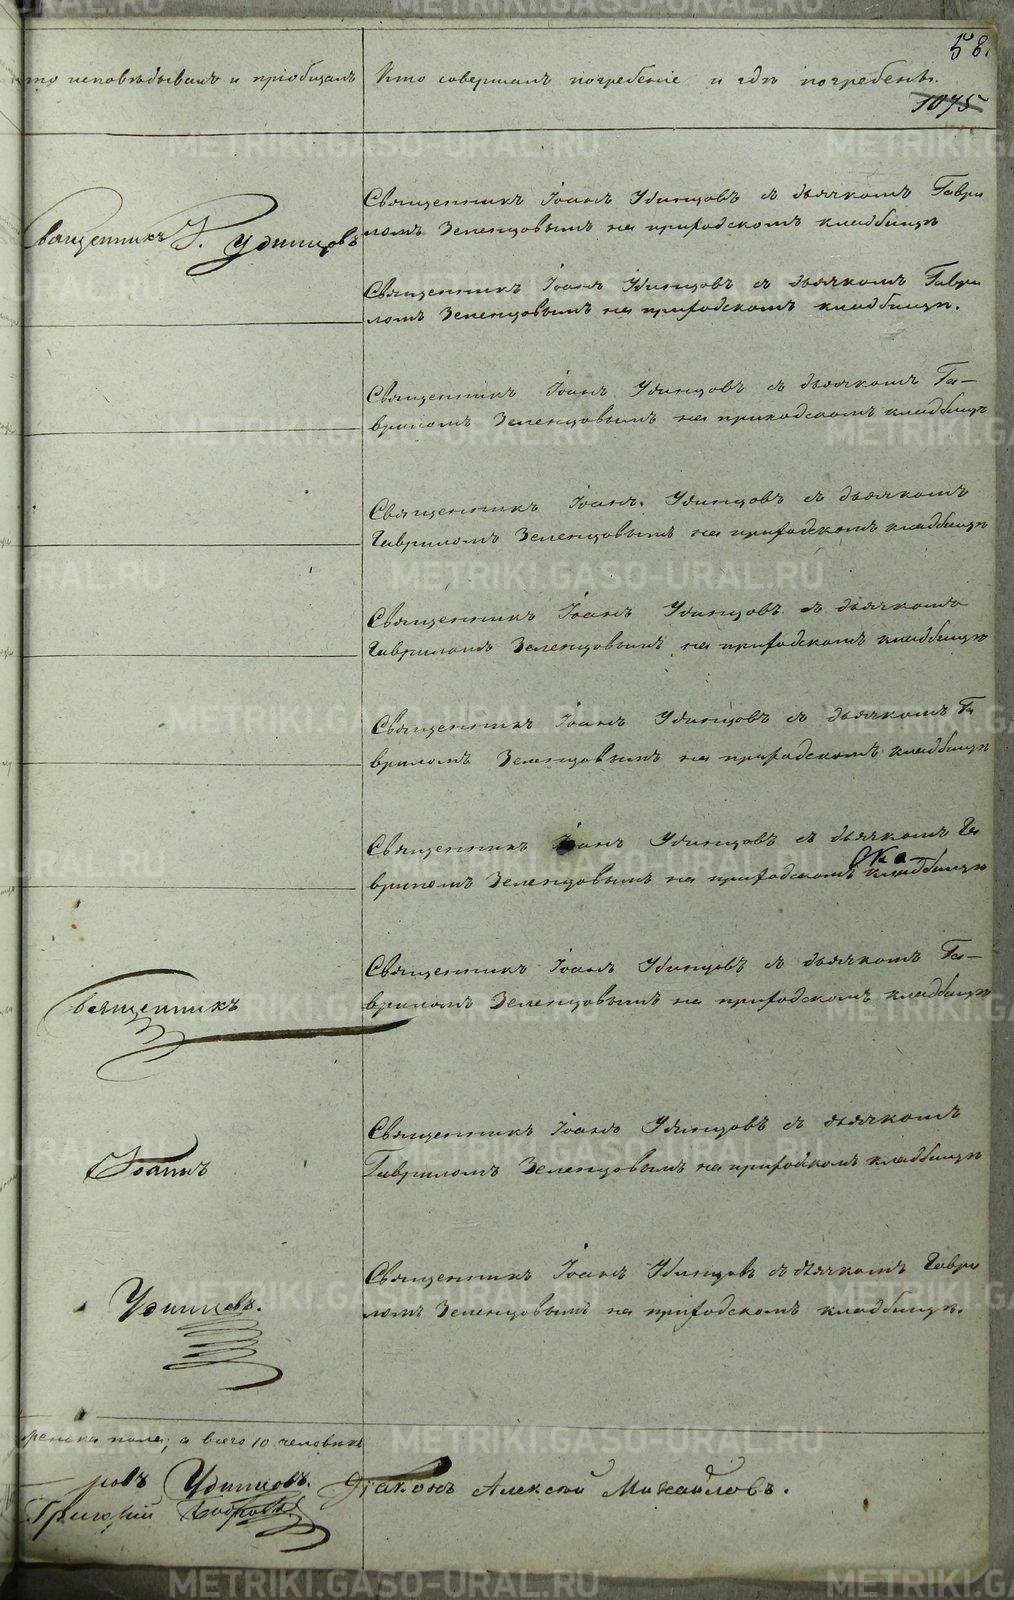 58.
кто исповѣдывалъ и пріобщалъ
Кто совершалъ погребеніе и гдѣ погребены.
1075
Священникъ І. Удинцовъ
Священникъ Іоаннъ Удинцовъ съ дьячкомъ Гаври
ломъ Зеленцовымъ на приходскомъ кладбищѣ
Священникъ Іоаннъ Удинцовъ съ дьячкомъ Гаври
ломъ Зеленцовымъ на приходскомъ кладбищѣ.
Священникъ Іоаннъ Удинцовъ съ дьячкомъ Га–
вриломъ Зеленцовымъ на приходскомъ кладбищѣ
Священникъ Іоаннъ Удинцовъ съ дьячкомъ
Гавриломъ Зеленцовымъ на приходскомъ кладбищѣ
Священникъ Іоаннъ Удинцовъ съ дьячкомъ
Гавриломъ Зеленцовымъ на приходскомъ кладбищѣ
Священникъ Іоаннъ Удинцовъ съ дьячкомъ Га
вриломъ Зеленцовымъ на приходскомъ кладбищѣ
Священникъ Іоаннъ Удинцовъ съ дьячкомъ Га
вриломъ Зеленцовымъ на приходскомъ кладбищѣ
Священникъ Іоаннъ Удинцовъ съ дьячкомъ Га–
вриломъ Зеленцовымъ на приходскомъ кладбищѣ
Священникъ
Священникъ Іоаннъ Удинцовъ съ дьячкомъ
Гавриломъ Зеленцовымъ на приходскомъ кладбищѣ
Іоаннъ
Священникъ Іоаннъ Удинцовъ съ дьячкомъ Гаври
ломъ Зеленцовымъ на приходскомъ кладбищѣ.
Удинцовъ.
женска пола, а всего 10 человѣкъ
Удинцовъ. Діаконъ Алексѣй Михайловъ.
Григорій
METRIKI.GASO-URAL.RU